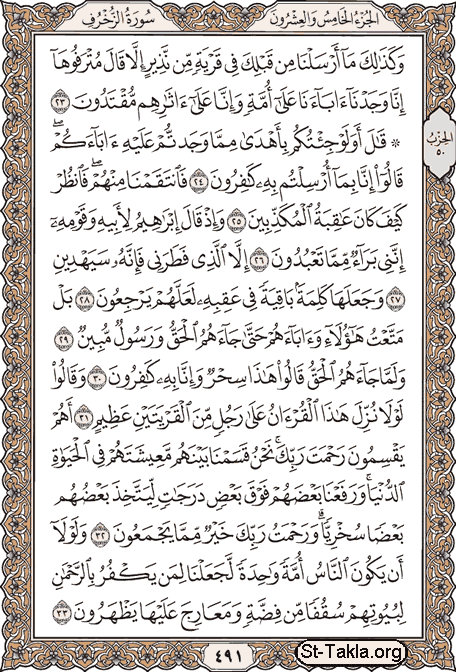 سُورَةُ الزُّخْرُفِ
الجُزْءُ الخَامِسُ وَالعِشْرُونَ
وَكَذَٰلِكَ مَآ أَرْسَلْنَا مِن قَبْلِكَ فِي قَرْيَةٍ مِّن نَّذِيرٍ إِلَّا قَالَ مُتْرَفُوهَآ
إِنَّا وَجَدْنَآ ءَابَآءَنَا عَلَىٰٓ أُمَّةٍ وَإِنَّا عَلَىٰٓ ءَاثَٰرِهِم مُّقْتَدُونَ ٢٣
* قَٰلَ أَوَلَوْ جِئْتُكُم بِأَهْدَىٰ مِمَّا وَجَدتُّمْ عَلَيْهِ ءَابَآءَكُمْۖ
قَالُوٓا۟ إِنَّا بِمَآ أُرْسِلْتُم بِهِۦ كَٰفِرُونَ ٢٤ فَٱنتَقَمْنَا مِنْهُمْۖ فَٱنظُرْ
كَيْفَ كَانَ عَٰقِبَةُ ٱلْمُكَذِّبِينَ ٢٥ وَإِذْ قَالَ إِبْرَٰهِيمُ لِأَبِيهِ وَقَوْمِهِۦٓ
إِنَّنِي بَرَآءٌ مِّمَّا تَعْبُدُونَ ٢٦ إِلَّا ٱلَّذِي فَطَرَنِي فَإِنَّهُۥ سَيَهْدِينِ
٢٧ وَجَعَلَهَا كَلِمَةًۢ بَاقِيَةً فِي عَقِبِهِۦ لَعَلَّهُمْ يَرْجِعُونَ ٢٨ بَلْ
مَتَّعْتُ هَٰٓؤُلَآءِ وَءَابَآءَهُمْ حَتَّىٰ جَآءَهُمُ ٱلْحَقُّ وَرَسُولٌ مُّبِينٌ ٢٩
وَلَمَّا جَآءَهُمُ ٱلْحَقُّ قَالُوا۟ هَٰذَا سِحْرٌ وَإِنَّا بِهِۦ كَٰفِرُونَ ٣٠ وَقَالُوا۟
لَوْلَا نُزِّلَ هَٰذَا ٱلْقُرْءَانُ عَلَىٰ رَجُلٍ مِّنَ ٱلْقَرْيَتَيْنِ عَظِيمٍ ٣١ أَهُمْ
يَقْسِمُونَ رَحْمَتَ رَبِّكَۚ نَحْنُ قَسَمْنَا بَيْنَهُم مَّعِيشَتَهُمْ فِي ٱلْحَيَوٰةِ
ٱلدُّنْيَاۚ وَرَفَعْنَا بَعْضَهُمْ فَوْقَ بَعْضٍ دَرَجَٰتٍ لِّيَتَّخِذَ بَعْضُهُم
بَعْضًا سُخْرِيًّاۗ وَرَحْمَتُ رَبِّكَ خَيْرٌ مِّمَّا يَجْمَعُونَ ٣٢ وَلَوْلَآ
أَن يَكُونَ ٱلنَّاسُ أُمَّةً وَٰحِدَةً لَّجَعَلْنَا لِمَن يَكْفُرُ بِٱلرَّحْمَٰنِ
لِبُيُوتِهِمْ سُقُفًا مِّن فِضَّةٍ وَمَعَارِجَ عَلَيْهَا يَظْهَرُونَ ٣٣
الحِزْبُ
٥٠
٤٩١
St-Takla.org